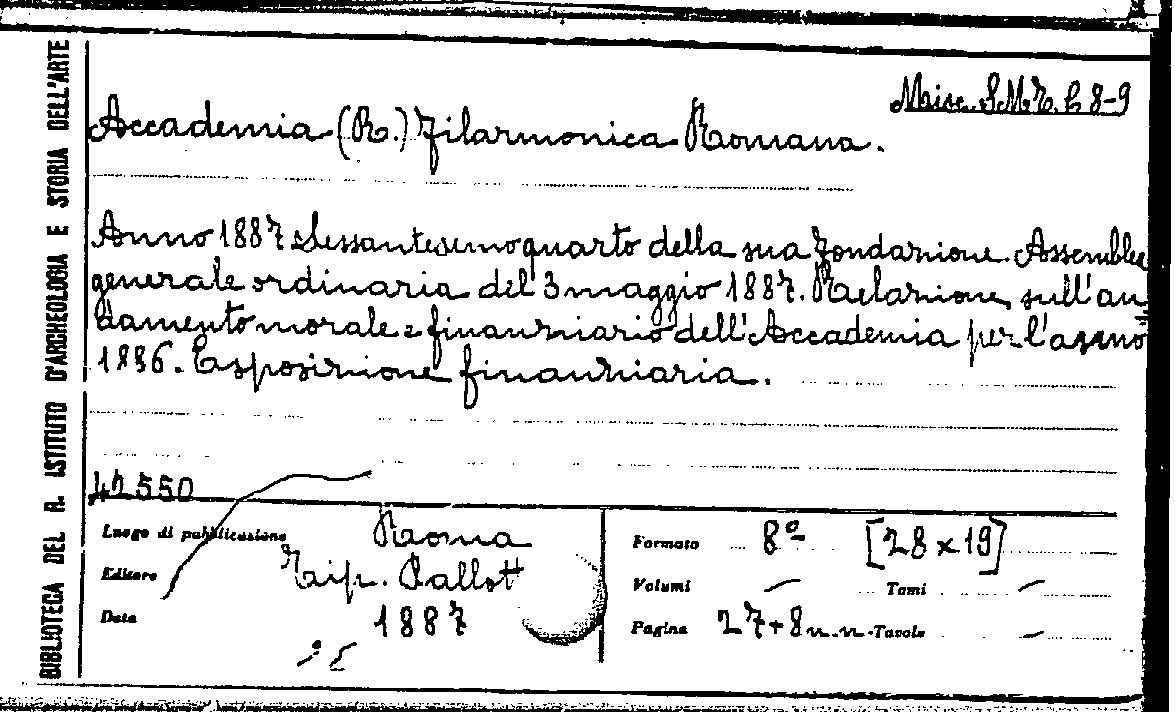 BIBLIOTECA DEL R. ISTITUTO D'ARCHEOLOGIA E STORIA DELL'ARTE
Misc. S.M.Z. C 8-9
Accademia (R.) Filarmonica Romana.
Anno 1887 Sessantesimoquarto della sua fondazione. Assemblea
generale ordinaria del 3 maggio 1887. Relazione sull'an
damento morale e finanziario dell'Accademia per l'anno
1886. Esposizione finanziaria.
42550
Luogo di pubblicazione Roma
Editore Tip. Pallott
Data 1887
Formato 8º [28 x 19]
Volumi — Tomi —
Pagine 27+8 n.n. Tavole —